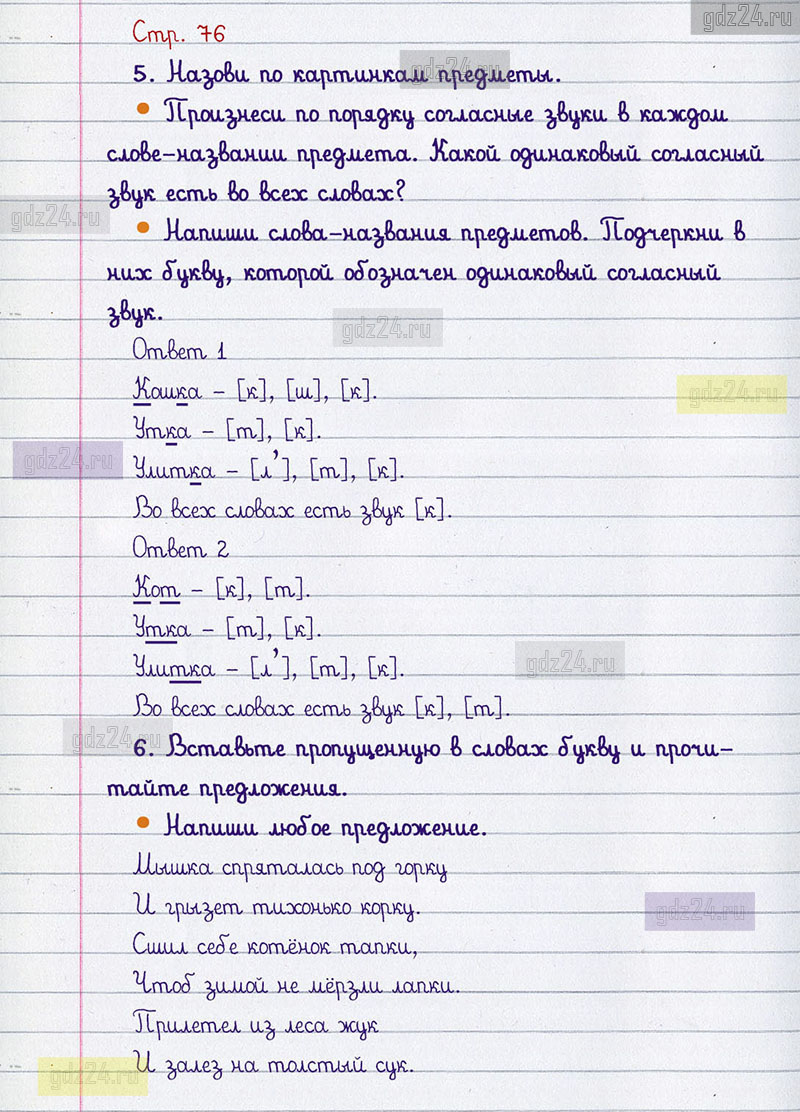 gdz24.ru
Стр. 76
gdz24.ru
5. Назови по картинкам предметы.
• Произнеси по порядку согласные звуки в каждом
слове-названии предмета. Какой одинаковый согласный
звук есть во всех словах?
gdz24.ru
• Напиши слова-названия предметов. Подчеркни в
них букву, которой обозначен одинаковый согласный
звук.
gdz24.ru
Ответ 1
Кошка – [к], [ш], [к].
gdz24.ru
Утка – [т], [к].
gdz24.ru
Улитка – [л'], [т], [к].
Во всех словах есть звук [к].
Ответ 2
Кот – [к], [т].
Утка – [т], [к].
Улитка – [л'], [т], [к].
gdz24.ru
Во всех словах есть звук [к], [т].
gdz24.ru
6. Вставьте пропущенную в словах букву и прочи-
тайте предложения.
• Напиши любое предложение.
Мышка спряталась под горку
И грызет тихонько корку.
gdz24.ru
Сшил себе котёнок тапки,
Чтоб зимой не мёрзли лапки.
Прилетел из леса жук
И залез на толстый сук.
gdz24.ru